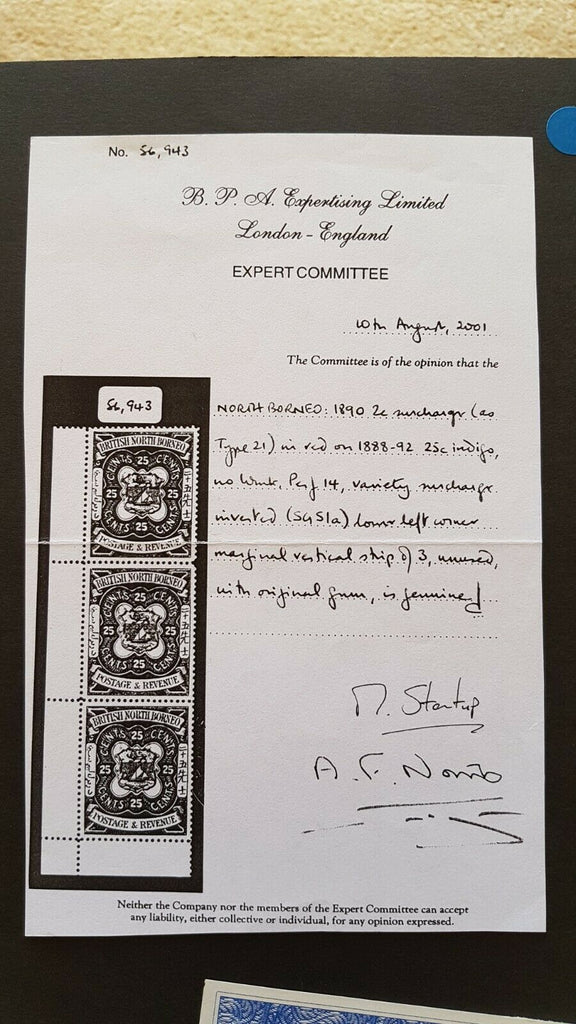 No. 56,943
B. P. A. Expertising Limited
London - England
EXPERT COMMITTEE
10th August, 2001
The Committee is of the opinion that the
56,943
NORTH BORNEO: 1890 2c surcharge (as
Type 21) in red on 1888-92 25c indigo,
no wmk, Perf 14, variety surcharge
inverted (SG51a) lower left corner
marginal vertical strip of 3, unused,
with original gum, is genuine
BRITISH NORTH BORNEO
CENTS 25 CENTS
25 25
CENTS 25 CENTS
POSTAGE & REVENUE
BRITISH NORTH BORNEO
CENTS 25 CENTS
25 25
CENTS 25 CENTS
POSTAGE & REVENUE
BRITISH NORTH BORNEO
CENTS 25 CENTS
25 25
CENTS 25 CENTS
POSTAGE & REVENUE
A. F. Norris
Neither the Company nor the members of the Expert Committee can accept
any liability, either collective or individual, for any opinion expressed.